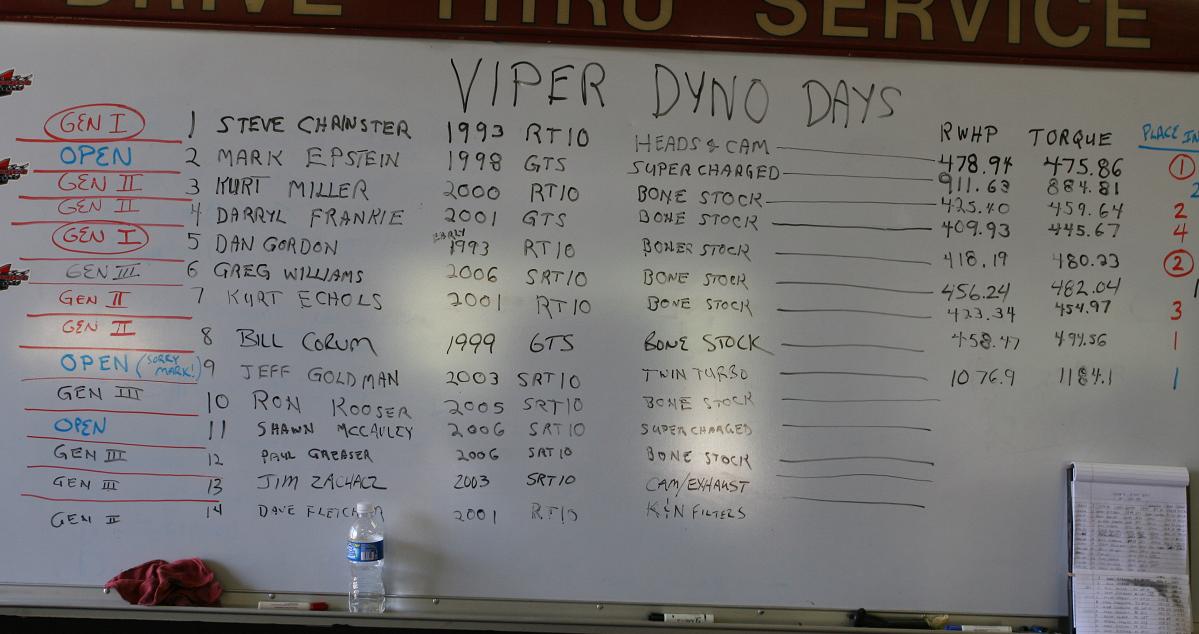 DRIVE THRU SERVICE
VIPER DYNO DAYS
RWHP TORQUE PLACE IN
GEN I 1 STEVE CHRINSTER 1993 RT10 HEADS & CAM 478.94 475.86 1
OPEN 2 MARK EPSTEIN 1998 GTS SUPERCHARGED 911.63 884.81 2
GEN II 3 KURT MILLER 2000 RT10 BONE STOCK 425.40 459.64 2
GEN II 4 DARRYL FRANKIE 2001 GTS BONE STOCK 409.93 445.67 4
GEN I 5 DAN GORDON EARLY 1993 RT10 BONER STOCK 418.19 480.23 2
GEN III 6 GREG WILLIAMS 2006 SRT10 BONE STOCK 456.24 482.04 1
GEN II 7 KURT ECHOLS 2001 RT10 BONE STOCK 423.34 454.97 3
GEN II 8 BILL CORUM 1999 GTS BONE STOCK 458.47 494.56 1
OPEN (SORRY MARK!) 9 JEFF GOLDMAN 2003 SRT10 TWIN TURBO 1076.9 1184.1 1
GEN III 10 RON KOOSER 2005 SRT10 BONE STOCK
OPEN 11 SHAWN MCCAULEY 2006 SRT10 SUPERCHARGED
GEN III 12 PAUL GREASER 2006 SRT10 BONE STOCK
GEN III 13 JIM ZACHACZ 2003 SRT10 CAM/EXHAUST
GEN II 14 DAVE FLETCHER 2001 RT10 K&N FILTERS